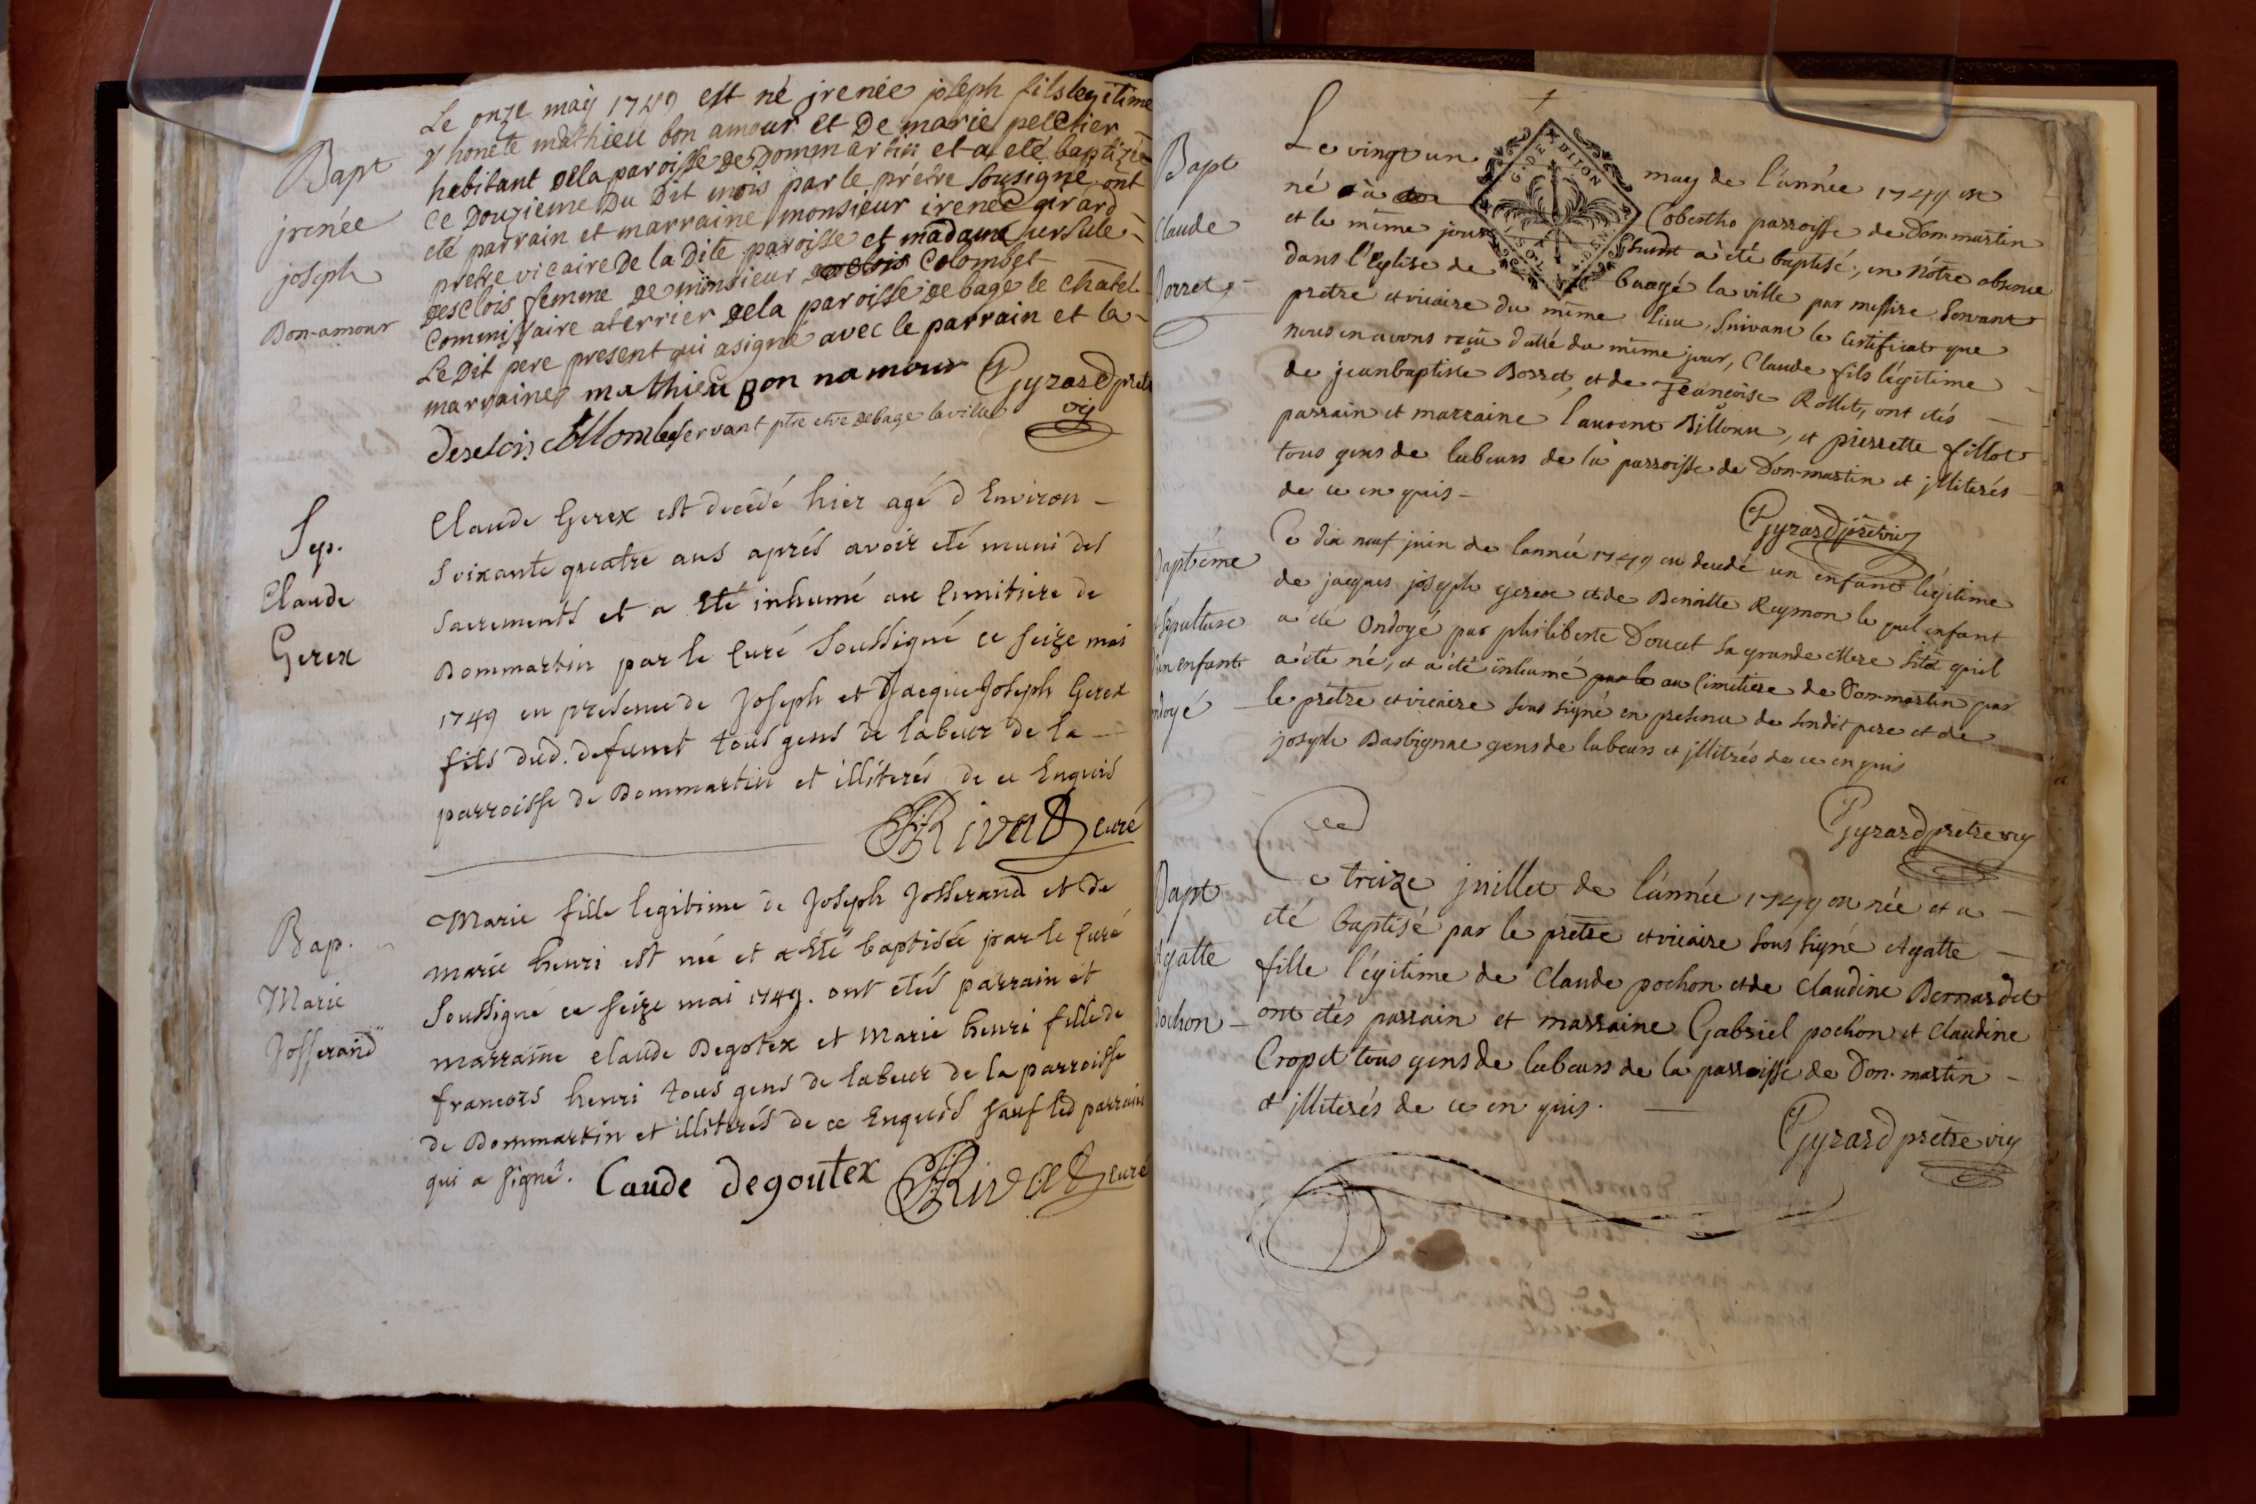 Le onze maÿ 1749 est né jrenée joseph fils legitime
d'honete mathieu bon amour et De marie peletier
habitant dela paroisse de Dommartin et a eté baptizé
ce Douzieme Du Dit mois par le prétre sousigné, ont
eté parrain et marraine monsieur irenée girard
pretre vicaire De la Dite paroisse et madame ursule
Desclois femme de monsieur Colombet
Commissaire a terrier dela paroisse de bagé le chatel
Le Dit pere present qui a signé avec le parrain et la
marraine mathieu Bon namour Gyrard pretr
vic
Desclois Collombet servant ptre vre de bage la ville
Bapt
jrenée
joseph
Bon-amour
Sep.
Claude
Gerex
Claude Gerex est decedé hier agé d Environ
soixante quatre ans aprés avoir eté muni des
sacrements et a Eté inhumé au Cimitiere de
Dommartin par le Curé Soussigné ce seize mai
1749 en presence de Joseph et Jacque Joseph Gerex
fils dud. defunct tous gens de labeur de la
parroisse de Dommartin et illiterés de ce Enquis
Rivat curé
Bap.
Marie
Josserand
Marie fille legitime de Joseph Josserand et de
marie henri est née et a Eté baptisée par le Curé
Soussigné ce seize mai 1749. ont etés parrain et
marraine claude Degotex et Marie henri fille de
francois henri tous gens de labeur de la parroisse
de Dommartin et illiterés de ce Enquis sauf led parrain
qui a signé. Caude degoutex Rivat curé
Bapt
Claude
Borret
Le vingt un may de l'année 1749 est
né à Cobertho parroisse de Dommartin
et le même jour à été baptisé, en nôtre absence
dans l'Eglise de baagé la ville par messire Servant
prêtre et vicaire du même lieu, suivant le certificat que
nous en avons reçû datté du même jour, Claude fils légitime
de jean baptiste Borret, et de Françoise Rollet, ont étés
parrain et marraine laurent Billoux, et pierrette fillot
tous gens de labeurs de la parroisse de Dom-martin et jlliterés
de ce en quis
Gyrard prêtre vic
Baptéme
sépulture
d'un enfant
ondoyé
Ce dix neuf juin de lannée 1749 est decedé un enfant légitime
de jacques joseph gerex et de Benoitte Reymon le quel enfant
a été Ondoyé par philiberte Doucet sa grande Mere sitôt qu'il
a été né, et a été inhumé par le au cimetiere de Dom-martin par
le prêtre et vicaire sous signé en presence de sondit pere et de
joseph Basbignac gens de labeurs et jllitrés de ce en quis
Gyrard prêtre vic
Bapt
Agatte
pochon
Ce treize juillet de l'année 1749 est née et a
été baptisé par le prêtre et vicaire sous signé Agatte
fille légitime de Claude pochon et de Claudine Bernardet
ont étés parrain et marraine Gabriel pochon et Claudine
Cropet tous gens de labeurs de la parroisse de Dom-martin
et jlliterés de ce en quis.
Gyrard prêtre vic